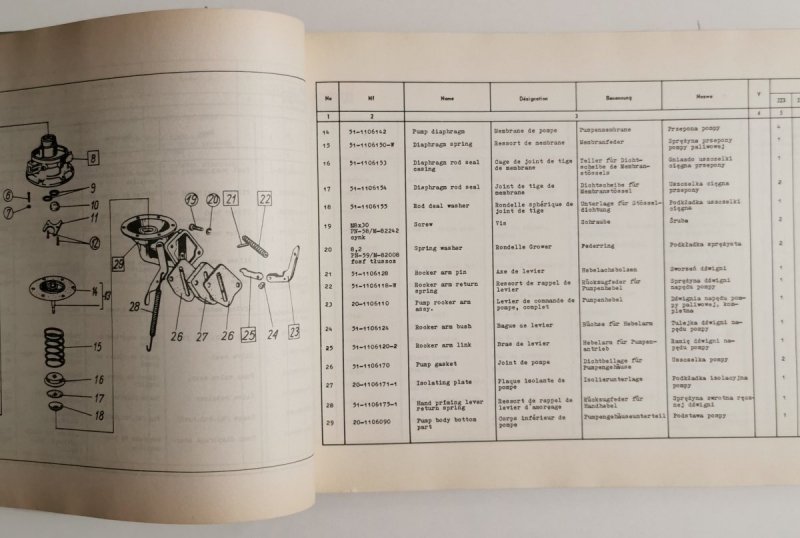 8
6
9
7
10
11
12
14
13
15
16
17
18
19
20
21
22
29
28
26
27
26
25
24
23
No Nf Name Désignation Benennung Nazwa V
1 2 3 4 5
14 51-1106142 Pump diaphragm Membrane de pompe Pumpenmembrane Przepona pompy 4
15 51-1106150-W Diaphragm spring Ressort de membrane Membranfeder Sprężyna przepony 1
pompy paliwowej
16 51-1106153 Diaphragm rod seal Cage de joint de tige Teller für Dicht- Gniazdo uszczelki 1
casing de membrane scheibe de Membran- cięgna przepony
stössels
17 51-1106154 Diaphragm rod seal Joint de tige de Dichtscheibe für Uszczelka cięgna 2
membrane Membranstössel przepony
18 51-1106155 Rod deal washer Rondelle sphérique de Unterlage für Stössel- Podkładka uszczelki 1
joint de tige dichtung cięgna
19 M8x30 Screw Vis Schraube Śruba 2
PN-58/M-82242
cynk
20 8,2 Spring washer Rondelle Grower Federring Podkładka sprężysta 2
PN-59/M-82008
fosf tłuszcz
21 51-1106128 Rocker arm pin Axe de levier Hebelachsbolzen Sworzeń dźwigni 1
22 51-1106118-W Rocker arm return Ressort de rappel de Rücksugfeder für Sprężyna dźwigni 1
spring levier Pumpenhebel napędu pompy
23 20-1106110 Pump rocker arm Levier de commande de Pumpenhebel Dźwignia napędu pom- 1
assy. pompe, complet py paliwowej, kom-
pletna
24 51-1106124 Rocker arm bush Bague de levier Büchse für Hebelarm Tulejka dźwigni na- 1
pędu pompy
25 51-1106120-2 Rocker arm link Bras de levier Hebelarm für Pumpen- Ramię dźwigni na- 1
antrieb pędu pompy
26 51-1106170 Pump gasket Joint de pompe Dichtbeilage für Uszczelka pompy 2
Pumpengehäuse
27 20-1106171-1 Isolating plate Plaque isolante de Isolierunterlage Podkładka izolacyjna 1
pompe pompy
28 51-1106175-1 Hand priming lever Ressort de rappel de Rücksugfeder für Sprężyna zwrotna ręcz- 1
return spring levier d'amorsage Handhebel nej dźwigni
29 20-1106090 Pump body bottom Corps inférieur de Pumpengehäuseunterteil Podstawa pompy 1
part pompe